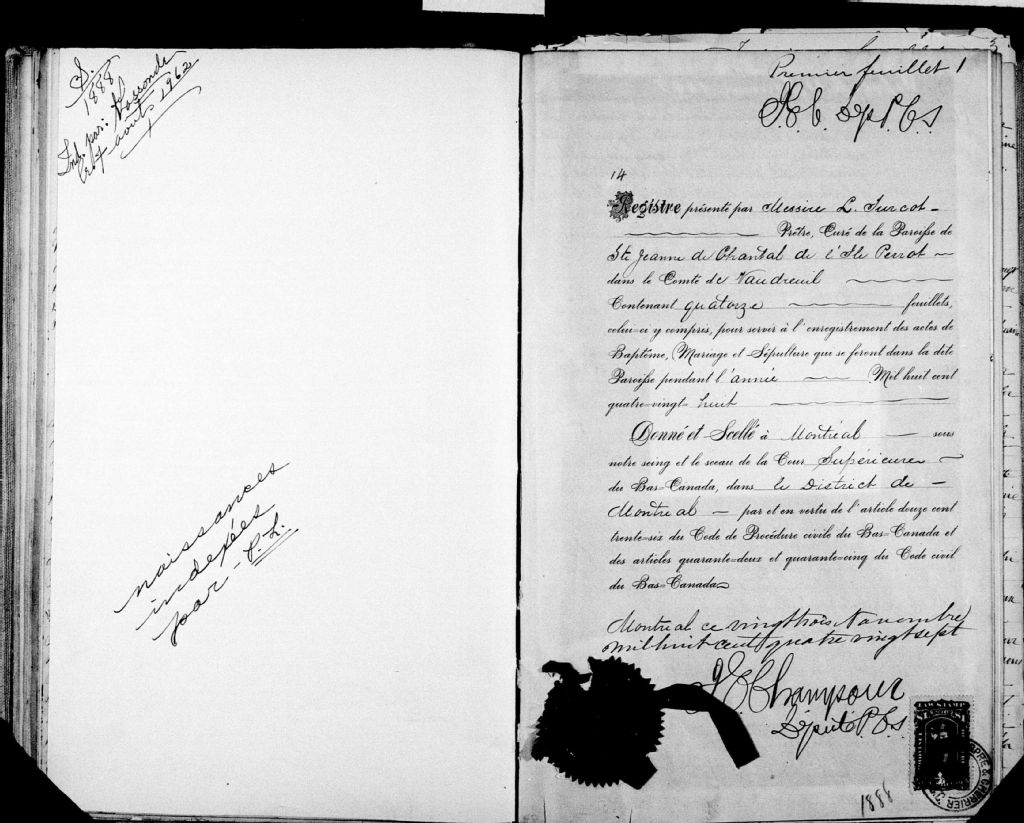 S.
1888
Ind. par:
août 1962
naissances
indexées
par - C. L.
Premier feuillet 1
Dép P. C. S
14
Registre présenté par Messire L. Turcot
Prêtre, Curé de la Paroisse de
Ste Jeanne de Chantal de l'Ile Perrot
dans le Comté de Vaudreuil
Contenant quatorze feuillets,
celui-ci y compris, pour servir à l'enregistrement des actes de
Baptême, Mariage et Sépulture qui se feront dans la dite
Paroisse pendant l'année Mil huit cent
quatre-vingt huit
Donné et Scellé à Montréal sous
notre seing et le sceau de la Cour Supérieure
du Bas-Canada, dans le District de
Montreal par et en vertu de l'article douze cent
trente-six du Code de Procédure civile du Bas-Canada et
des articles quarante-deux et quarante-cinq du Code civil
du Bas-Canada
Montreal ce vingt trois Novembre
mil huit cent quatre vingt sept
Député P. C. S.
LAW STAMP
1888